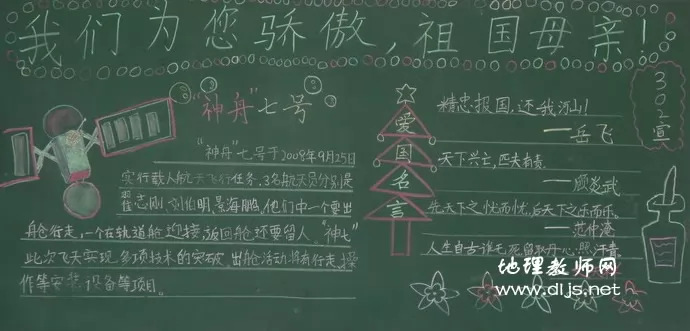 我们为您骄傲,祖国母亲!
"神舟"七号
"神舟"七号于2008年9月25日
实行载人航天飞行任务,3名航天员分别是
翟志刚,刘伯明,景海鹏,他们中一个要出
舱行走,一个在轨道舱迎接,返回舱还要留人。"神七"
此次飞天实现多项技术的突破,出舱活动将有行走、操
作等安装设备等项目。
爱国名言
精忠报国,还我河山!
——岳飞
天下兴亡,匹夫有责。
——顾炎武
先天下之忧而忧,后天下之乐而乐。
——范仲淹
人生自古谁无死,留取丹心照汗青。
302宣
地理教师网
www.dljs.net